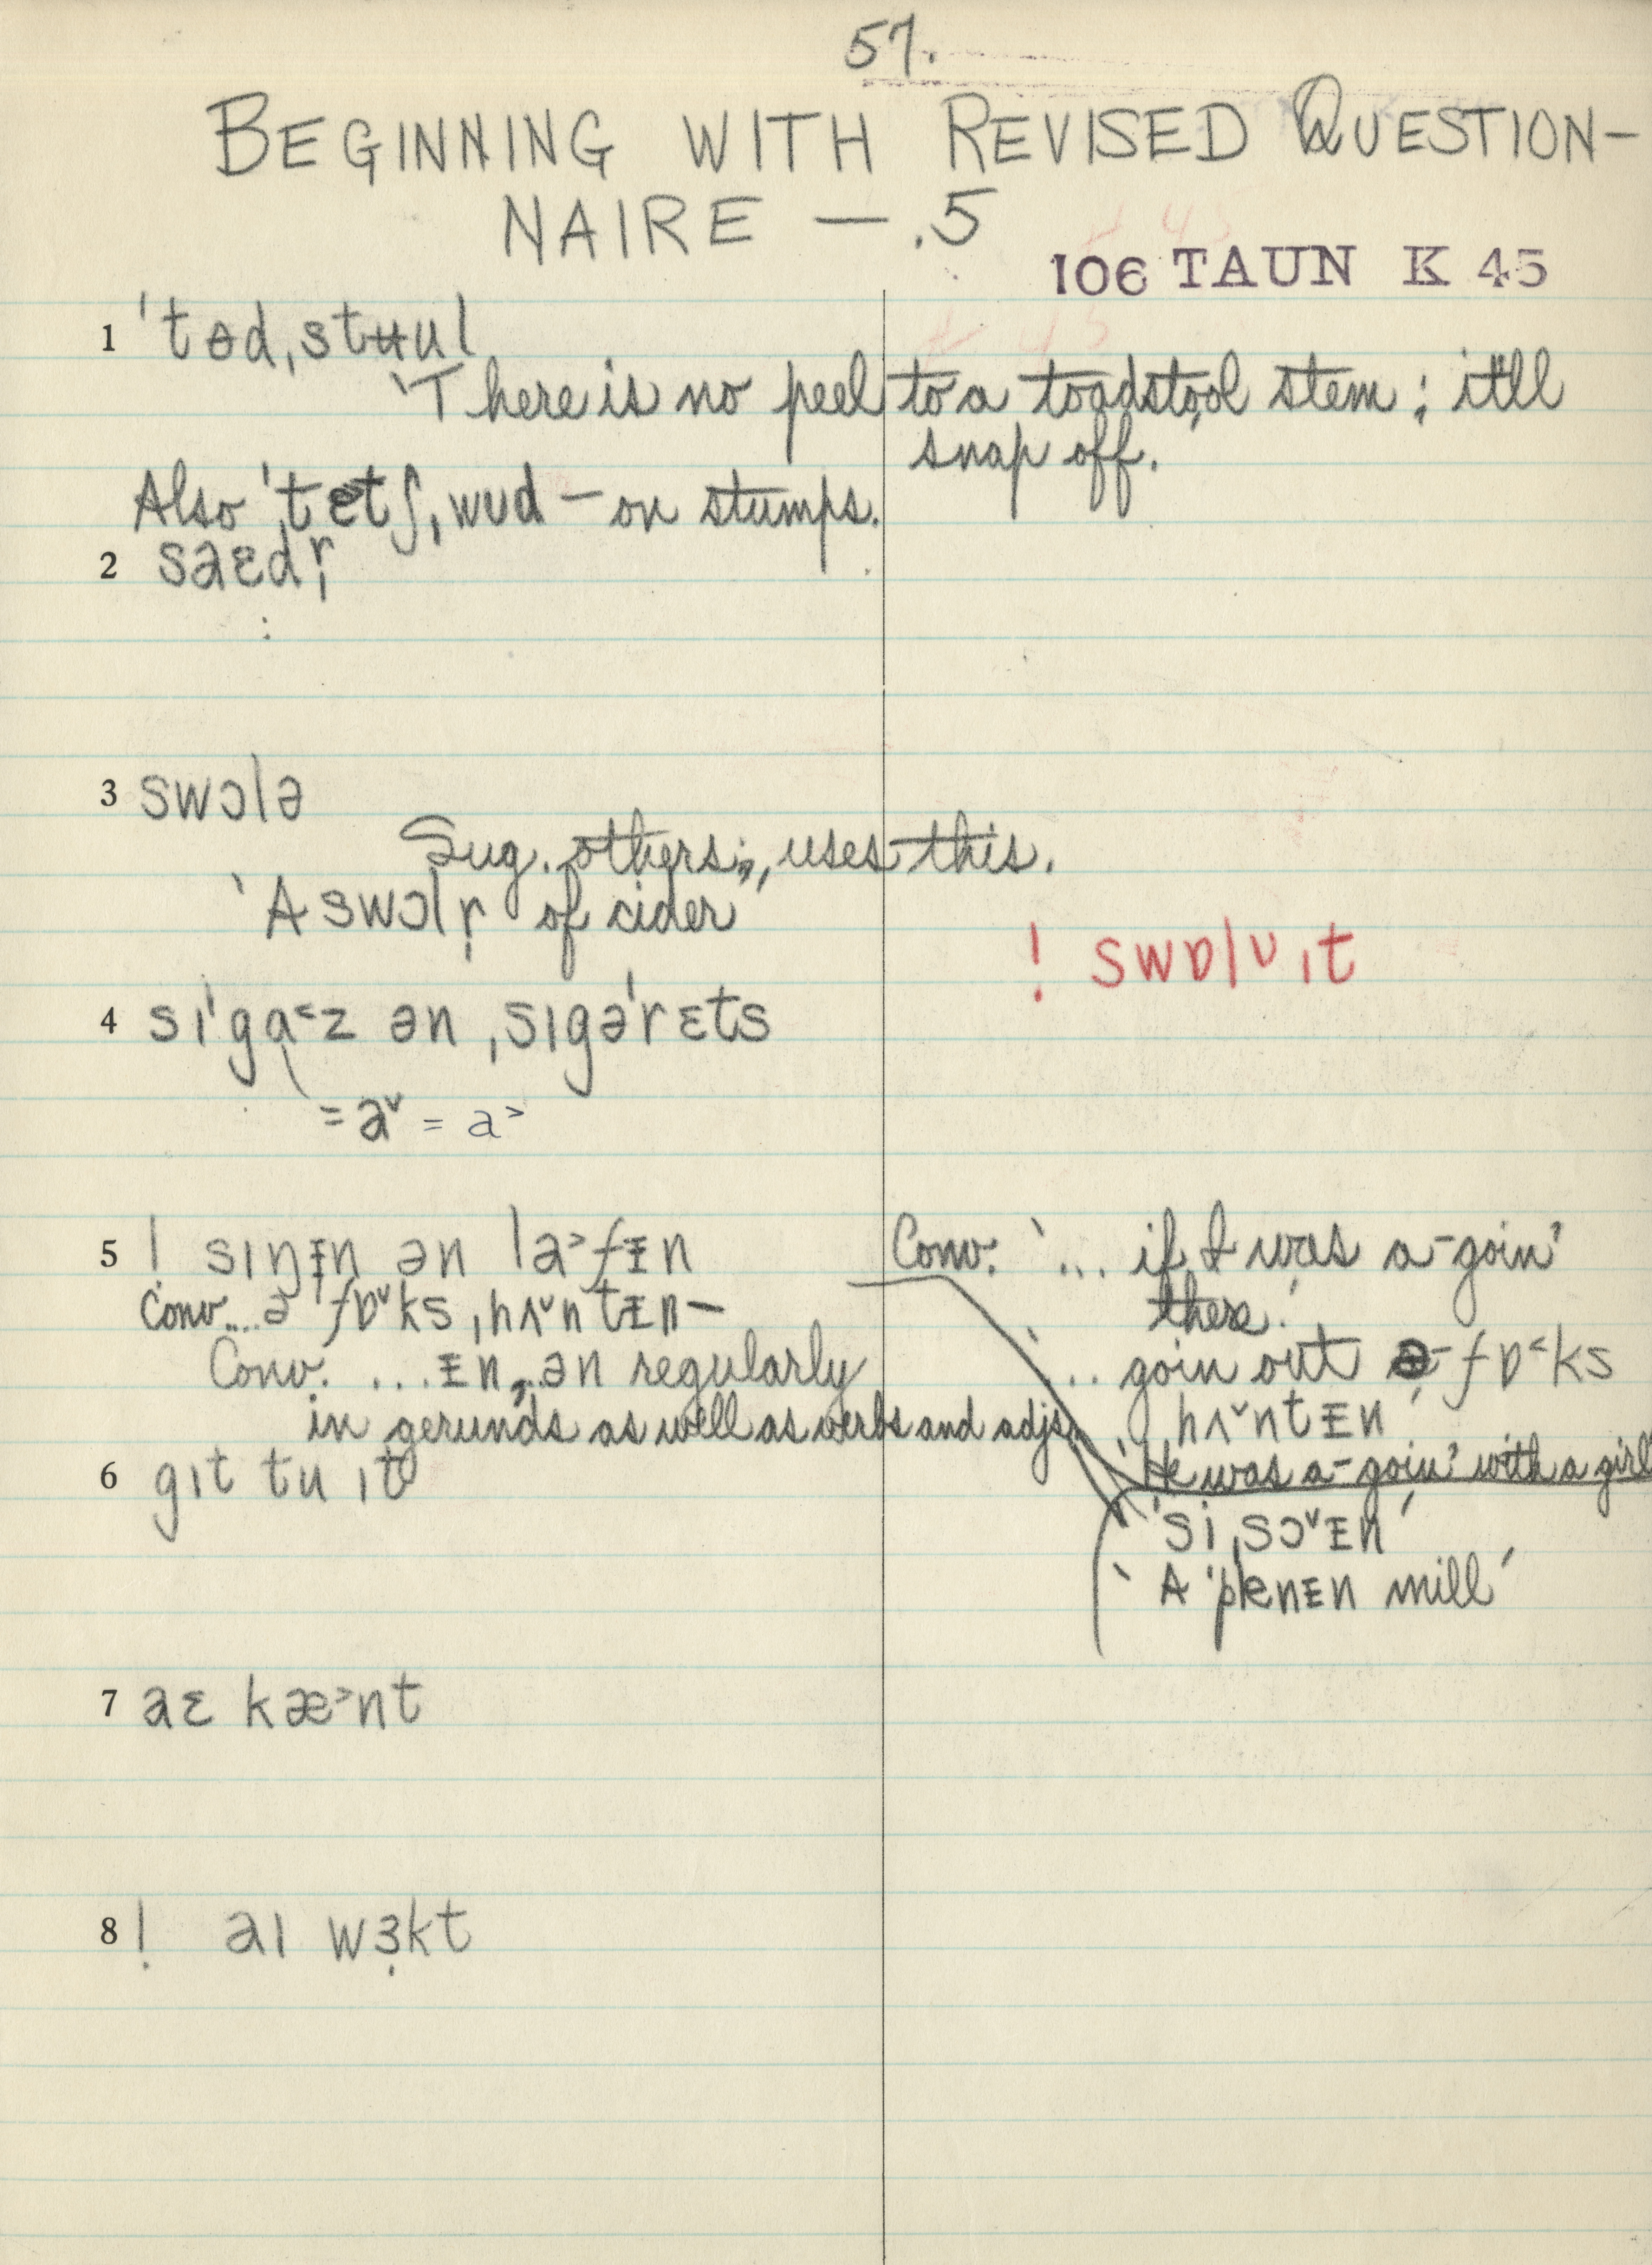 57.
BEGINNING WITH REVISED QUESTION-
NAIRE — .5
106 TAUN K 45
1 ˈtɵdˌstʉul
‘There is no peel to a toadstool stem; it'll
snap off.’
Also ˈtɐtʃˌwud – on stumps.
2 saɛdr̩
3 swɔlə
Sug. others; uses this.
‘A swɔlr̩ of cider’
! swɒlᴜ ɪt
4 sɪˈgɑ˂z ən ˌsɪgəˈrɛts
= a˅ = a˃
5 ! sɪŋɪn ən la˃fɪn
Conv. ...ə ˈfɒ˅ksˌhʌ˅ntɪn–
Conv. ...ɪn, ...ən regularly
in gerunds as well as verbs and adjs.
Conv. ‘... if I was a-goin'
there.’
‘... goin out ə-fɒ˂ks
hʌ˅ntɪn’
‘He was a-goin' with a girl’
‘siˌsɔ˅ɪn’
‘A ˈplenɪn mill’
6 gɪt tu ɪt
7 aɛ kæ˃nt
8 ! aɪ wɜkt